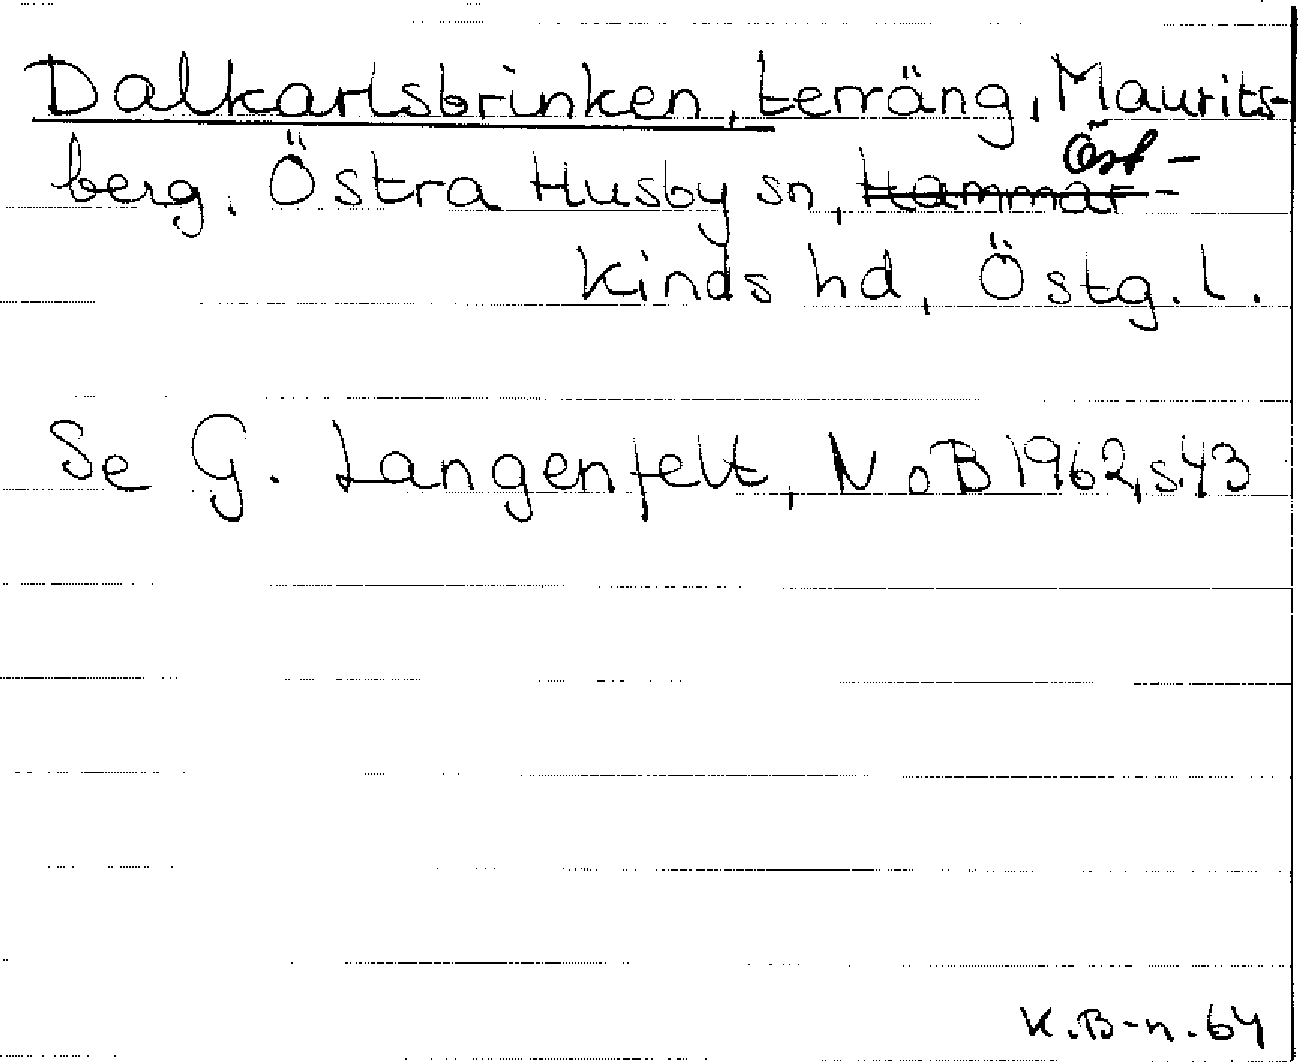 Dalkarlsbrinken, terräng, Maurits-
berg. Östra Husby sn, Hammar- Öst-
kinds hd, Östg. l.
Se G. Langenfelt, NoB 1962, s.43
K.B-n. 64